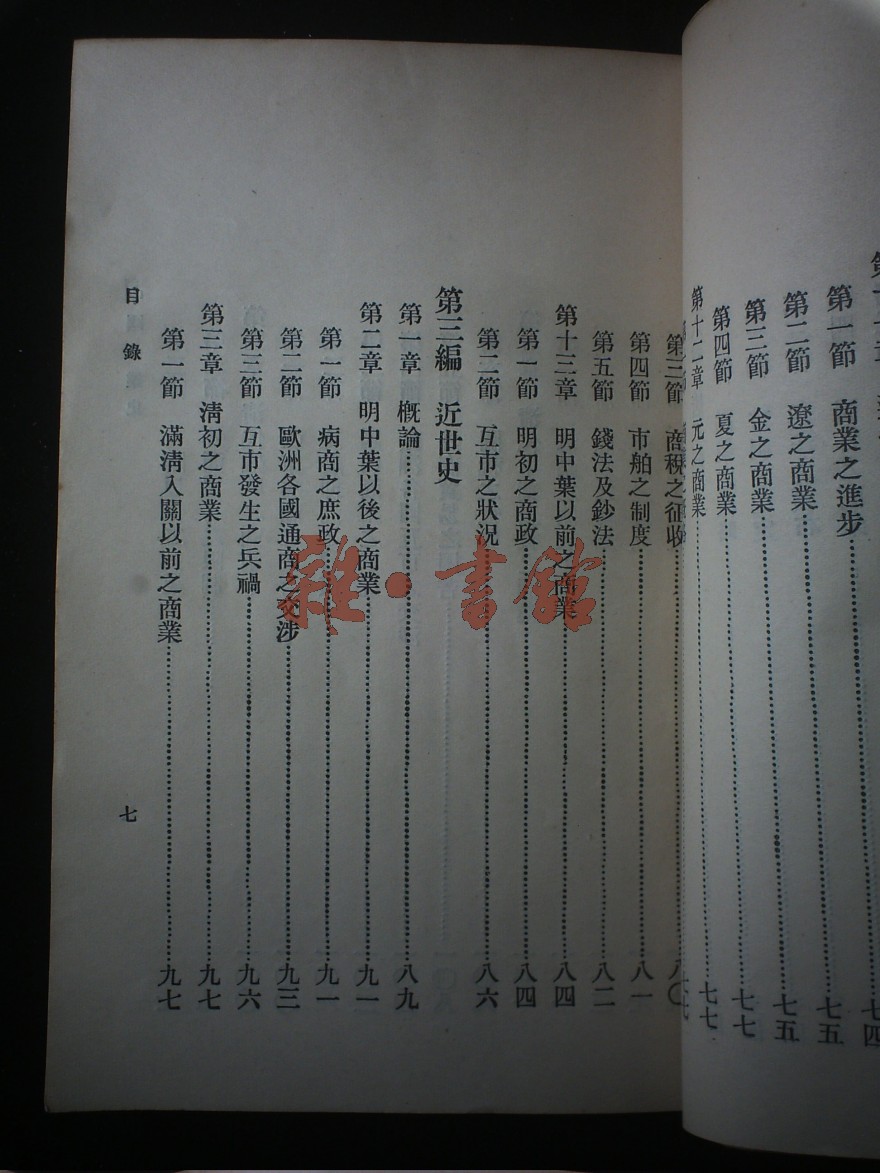 第一節　商業之進步……七四
第二節　遼之商業……七五
第三節　金之商業……七五
第四節　夏之商業……七七
第十二章　元之商業……七七
第三節　商稅之征收……八〇
第四節　市舶之制度……八一
第五節　錢法及鈔法……八二
第十三章　明中葉以前之商業……八四
第一節　明初之商政……八四
第二節　互市之狀況……八六
第三編　近世史
第一章　概論……八九
第二章　明中葉以後之商業……九一
第一節　病商之庶政……九一
第二節　歐洲各國通商之交涉……九三
第三節　互市發生之兵禍……九六
第三章　清初之商業……九七
第一節　滿清入關以前之商業……九七
目錄
七
雜·書館